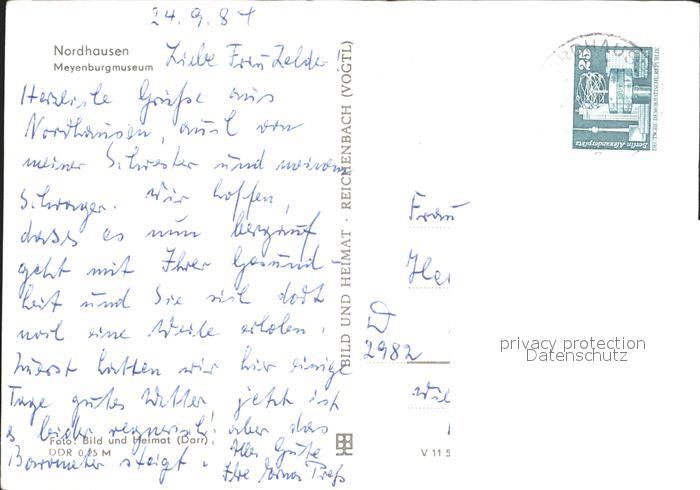 24.9.84
Nordhausen
Meyenburgmuseum
Liebe Frau Zelder!
Herzliche Grüße aus
Nordhausen, auch von
meiner Schwester und meinem
Schwager. Wir hoffen,
dass es nun bergauf
geht mit Ihrer Gesund-
heit und Sie sich dort
noch eine Weile erholen.
Zuerst hatten wir hier einige
Tage gutes Wetter jetzt ist
es leider regnerisch! aber das
Barometer steigt. Alles Gute
Ihre
Foto: Bild und Heimat (Darr)
DDR 0,25 M
BILD UND HEIMAT · REICHENBACH (VOGTL)
V 11 5
25
Berlin Alexanderplatz
DEUTSCHE DEMOKRATISCHE REPUBLIK
Frau
D
2982
privacy protection
Datenschutz